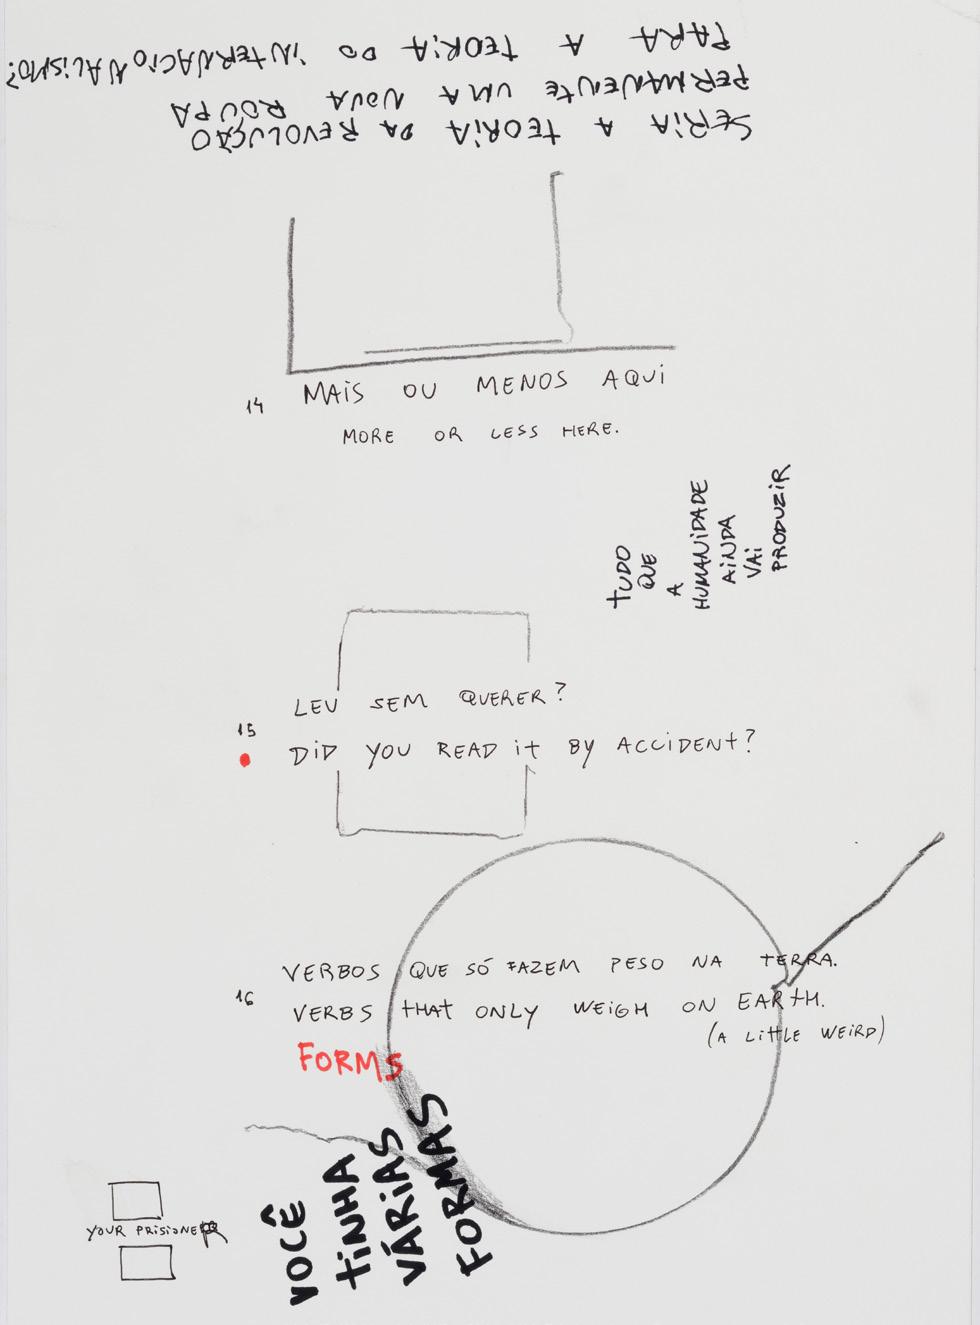 SERIA A TEORIA DA REVOLUÇÃO
PERMANENTE UMA NOVA ROUPA
PARA A TEORIA DO INTERNACIONALISMO?
14
MAIS OU MENOS AQUI
MORE OR LESS HERE.
TUDO
QUE
A
HUMANIDADE
AINDA
VAI
PRODUZIR
LEU SEM QUERER?
15
DID YOU READ IT BY ACCIDENT?
VERBOS QUE SÓ FAZEM PESO NA TERRA.
16
VERBS THAT ONLY WEIGH ON EARTH.
(A LITTLE WEIRD)
FORMS
VOCÊ
TINHA
VÁRIAS
FORMAS
YOUR PRISIONER